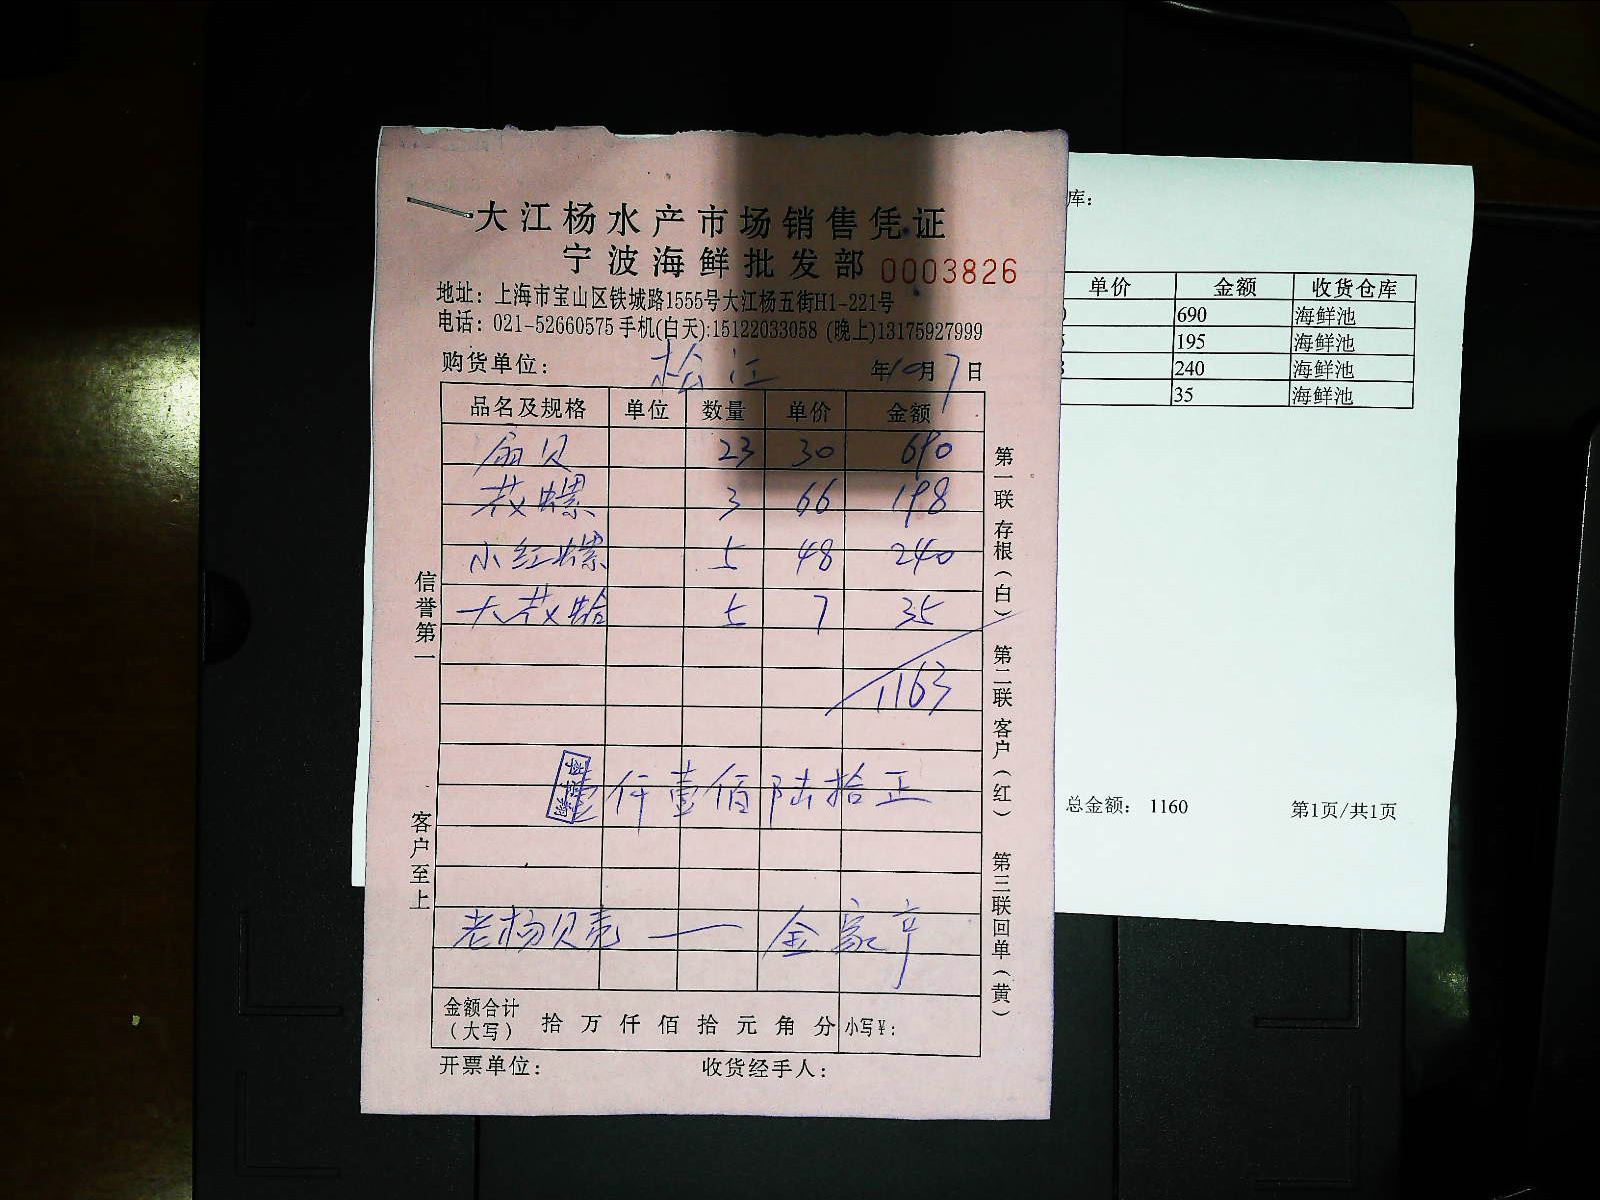 大江杨水产市场销售凭证
宁波海鲜批发部 0003826
地址：上海市宝山区铁城路1555号大江杨五街H1-221号
电话：021-52660575 手机(白天):15122033058 (晚上)13175927999
购货单位： 松江 年10月7日
品名及规格 单位 数量 单价 金额
扇贝 23 30 690
花螺 3 66 198
小红螺 5 48 240
大花蛤 5 7 35
1163
壹仟壹佰陆拾正
老杨贝壳 — 金家亨
金额合计（大写） 拾 万 仟 佰 拾 元 角 分 小写￥:
开票单位： 收货经手人：
信誉第一
客户至上
第一联存根（白） 第二联客户（红） 第三联回单（黄）
库：
单价 金额 收货仓库
690 海鲜池
195 海鲜池
240 海鲜池
35 海鲜池
总金额： 1160 第1页/共1页